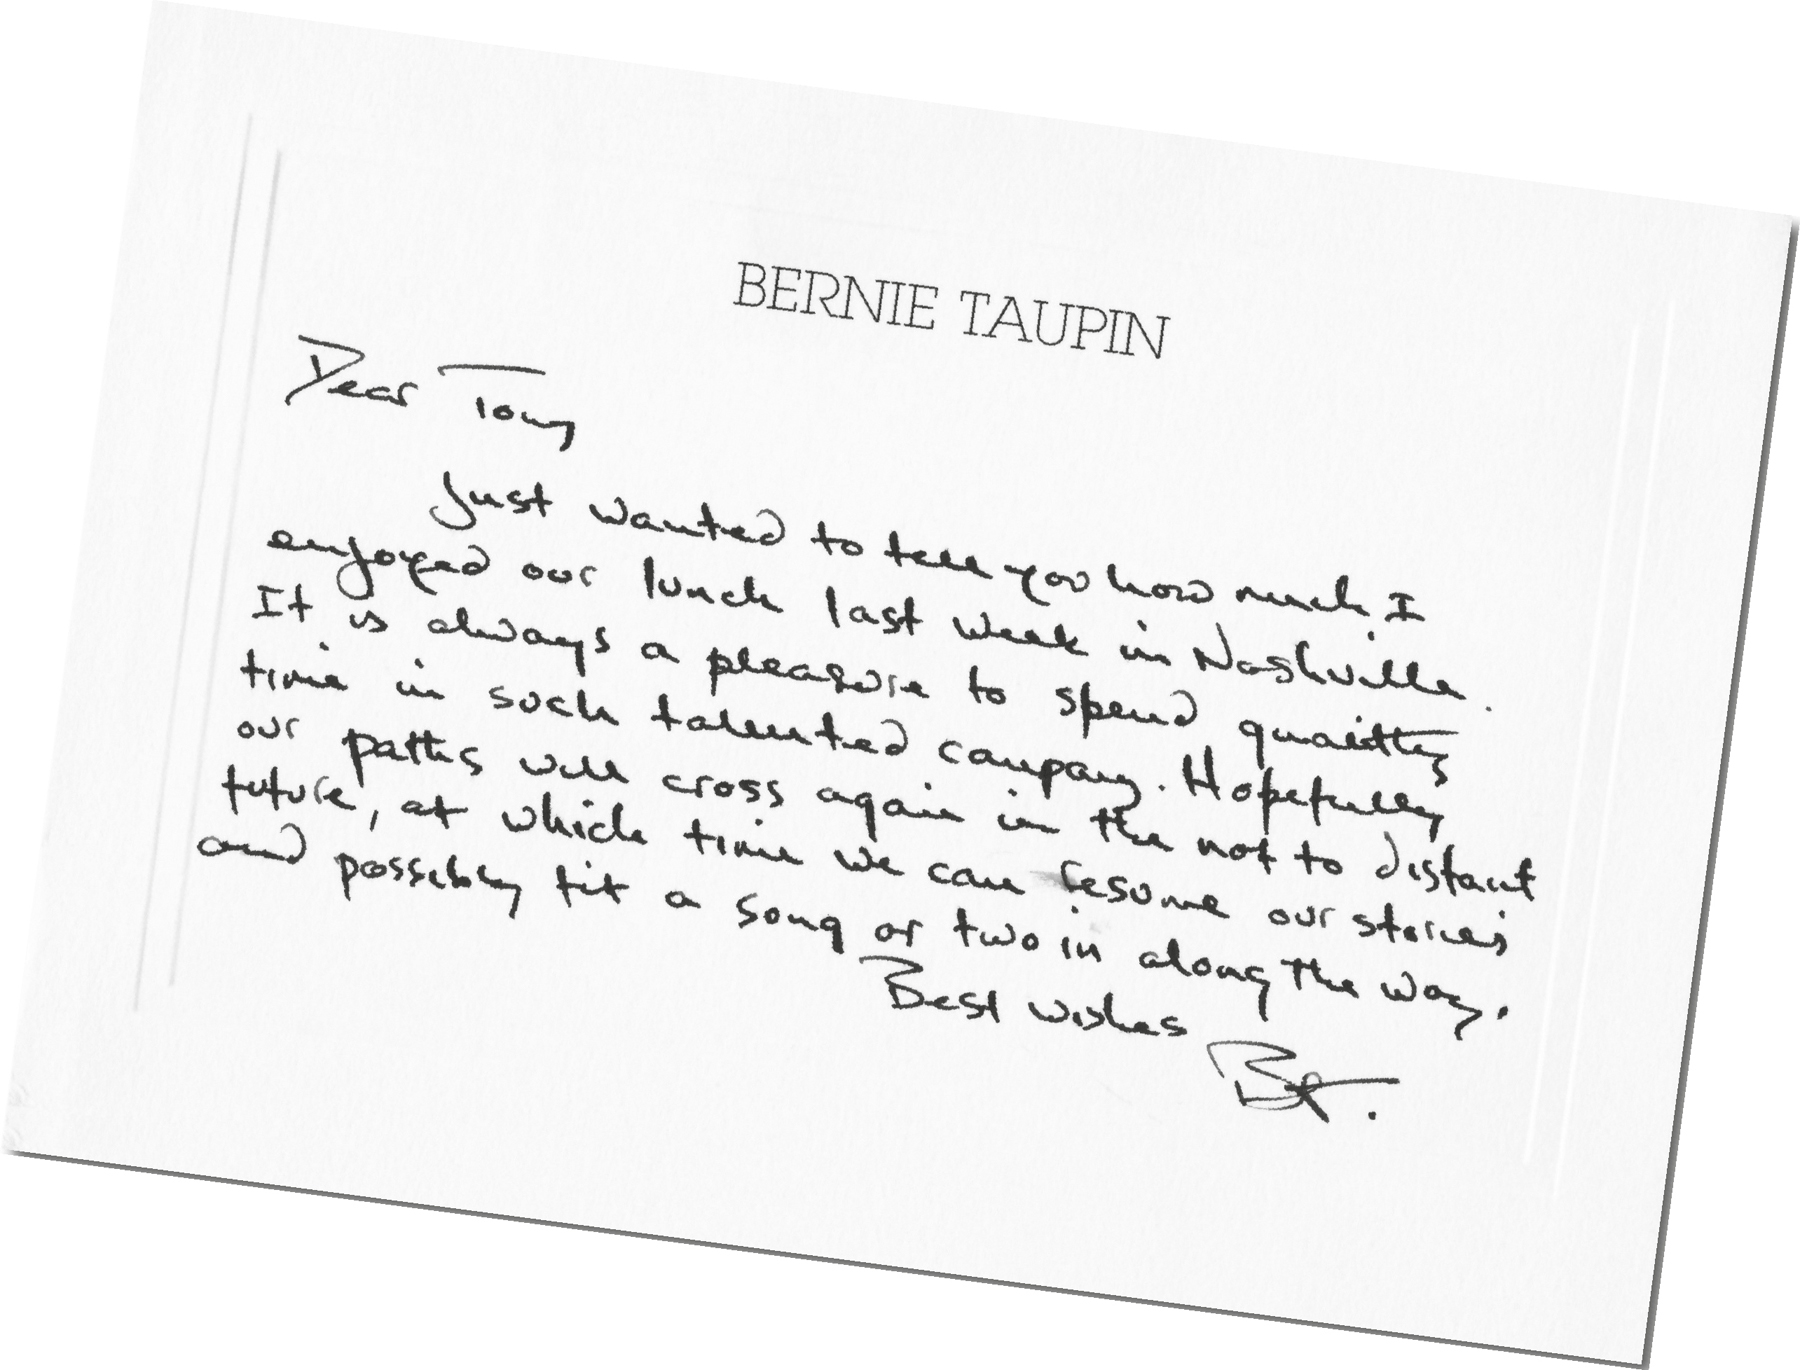 BERNIE TAUPIN
Dear Tony
Just wanted to tell you how much I
enjoyed our lunch last week in Nashville.
It is always a pleasure to spend quality
time in such talented company. Hopefully
our paths will cross again in the not to distant
future, at which time we can resume our stories
and possibly fit a song or two in along the way.
Best wishes
BT.